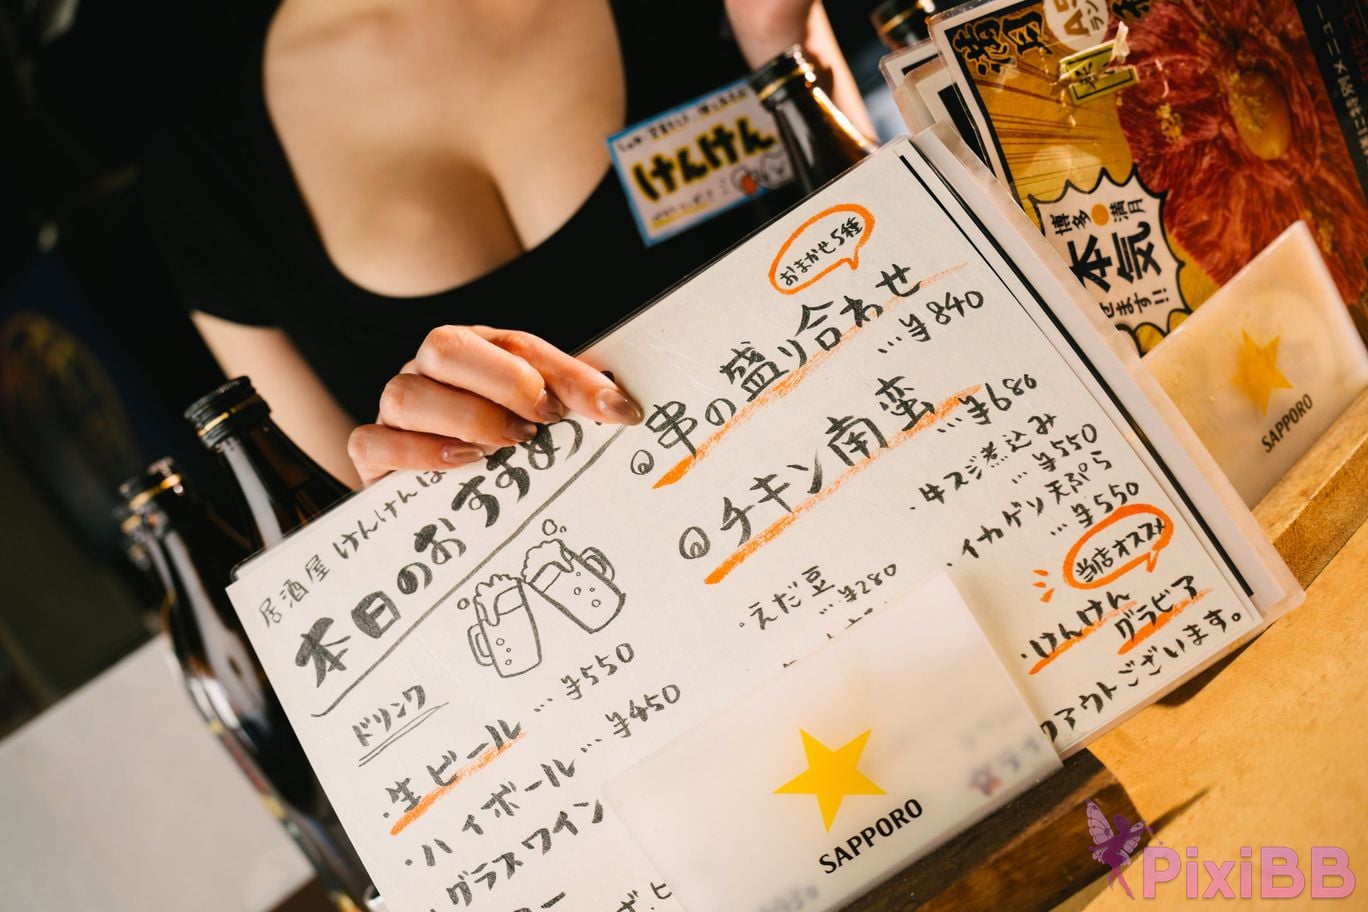 けんけん
居酒屋 けんけんは
本日のおすすめ
ドリンク
・生ビール … ¥550
・ハイボール … ¥450
・グラスワイン
おまかせ5種
◎串の盛り合わせ
… ¥840
◎チキン南蛮 … ¥680
・牛スジ煮込み
… ¥550
・イカゲソ天ぷら
… ¥550
・えだ豆
… ¥280
当店オススメ
・けんけん
グラビア
アウトございます。
SAPPORO
満月
博多 満月
本気
せます!!
SAPPORO
PixiBB